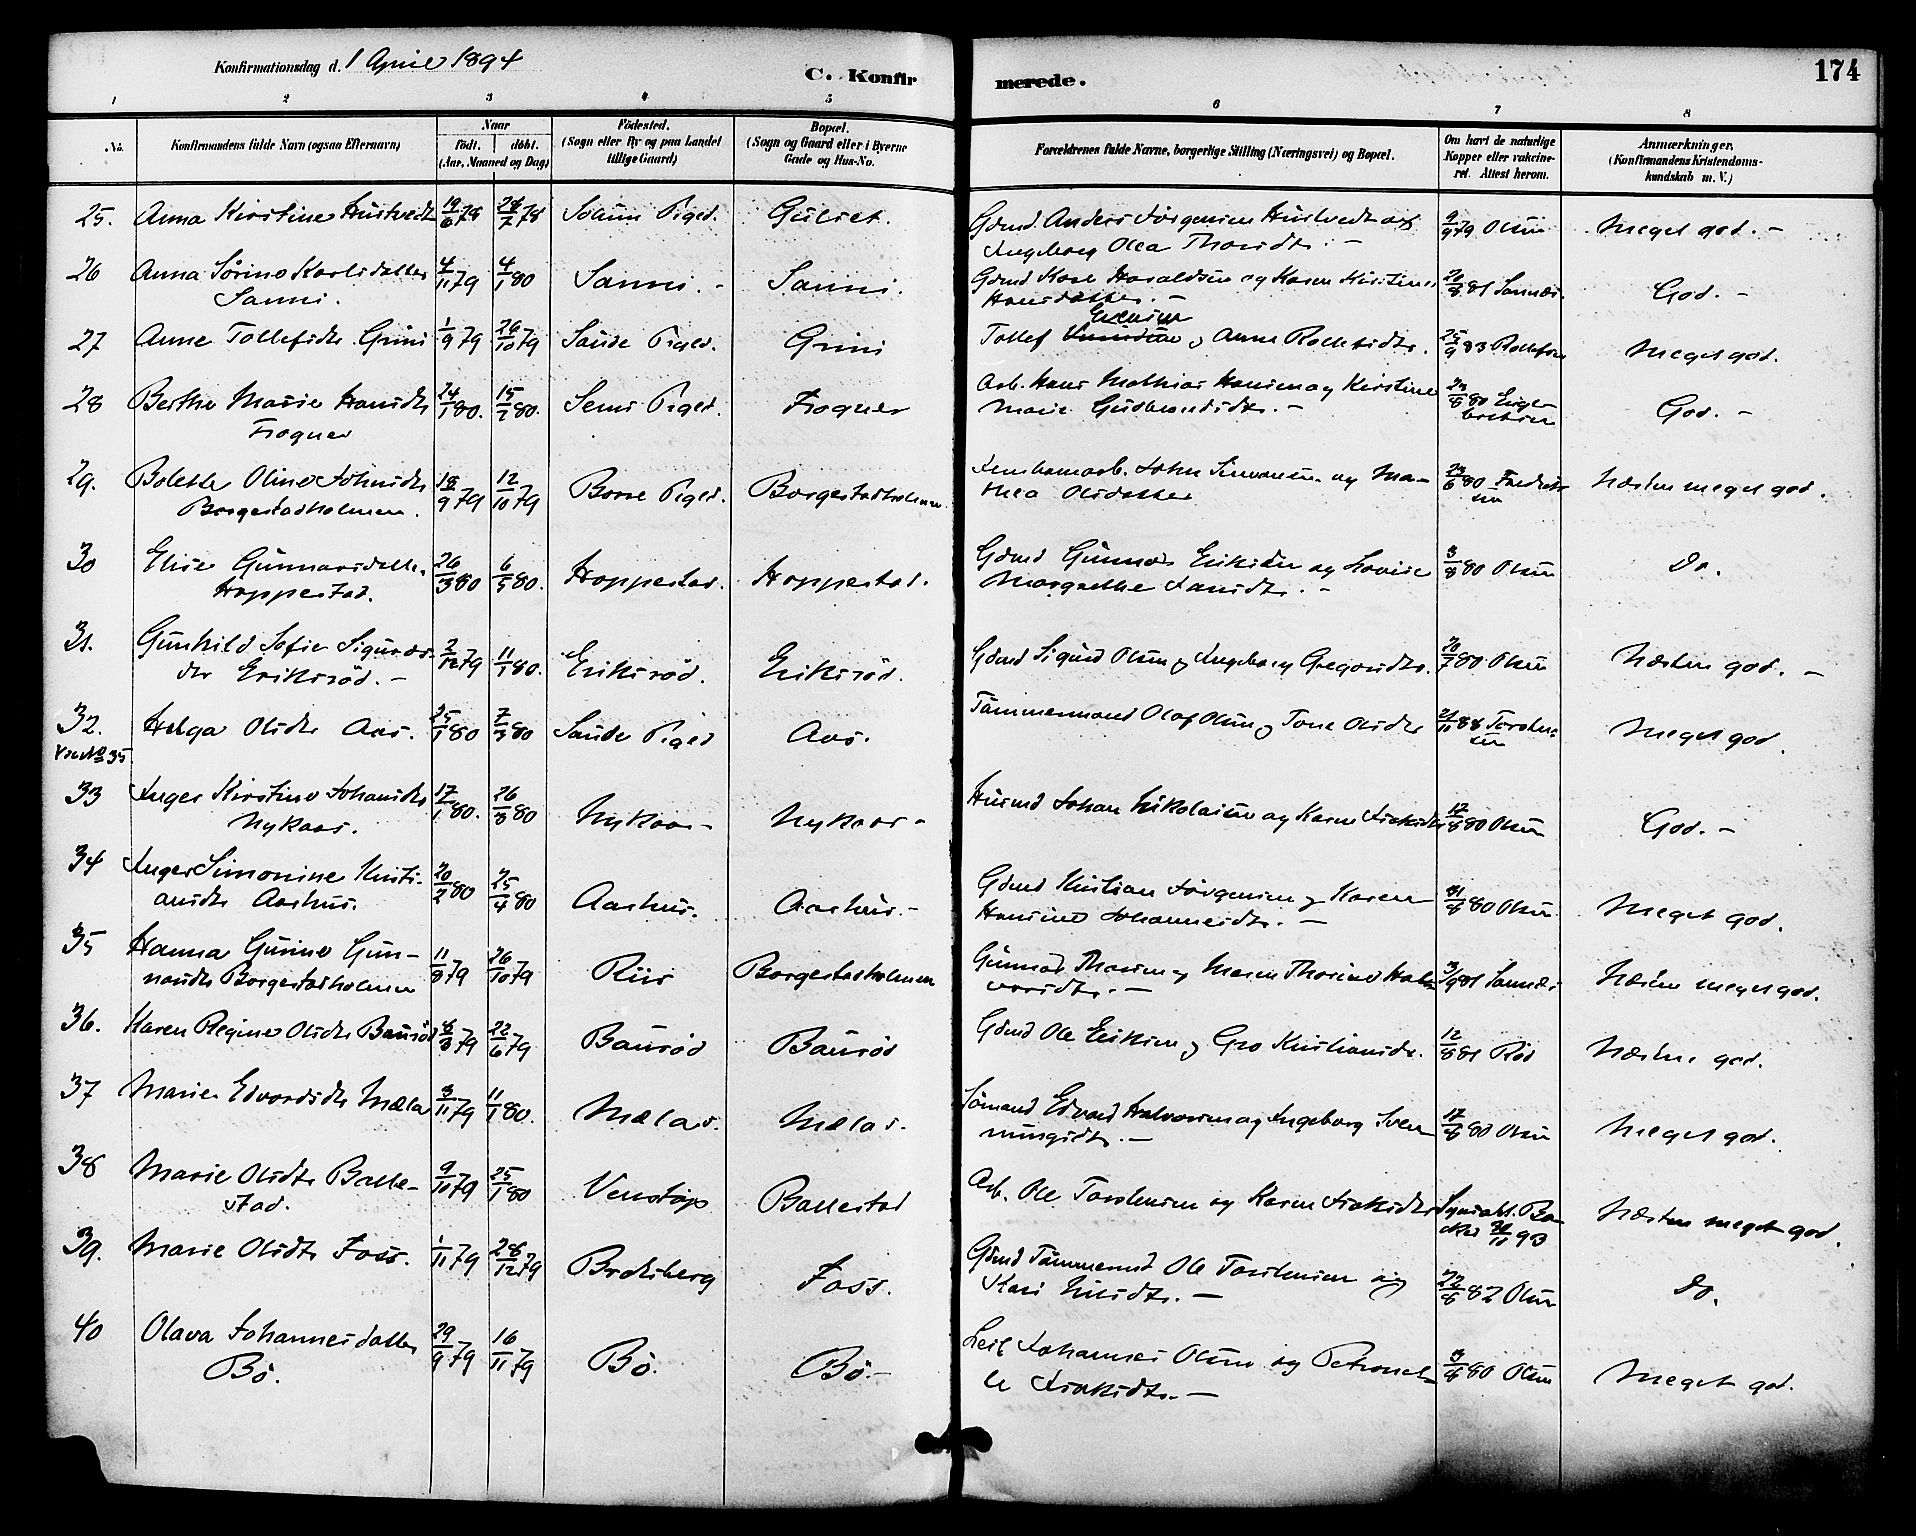 Konfirmationsdag d. 1 April 1894
C. Konfir merede. 174
1 2 3 4 5 6 7 8
No. Konfirmandens fulde Navn (ogsaa Efternavn) Naar Födt. döbt. (Aar, Maaned og Dag) Födested. (Sogn eller By og paa Landet tillige Gaard) Bopæl. (Sogn og Gaard eller i Byerne Gade og Hus-No. Forældrenes fulde Navne, borgerlige Stilling (Næringsvei) og Bopæl. Om havt de naturlige Kopper eller vaccineret. Attest herom. Anmærkninger. (Konfirmandens Kristendomskundskab m. V.)
25. Anna Kirstine Hustvedt 19/6 78 28/7 78 Solum Pgd. Gulset. Gbmd. Anders Jörgensen Hustvedt og 9/9 79 Olsen Meget god. -
Ingeborg Olea Thorsdtr. -
26 Anna Sörine Karlsdatter 4/11 79 4/1 80 Sanni. - Sanni. Gbmd Karl Haraldsen og Karen Kirstine 20/8 81 Sannæs. God. -
Sanni. Hansdatter. -
27 Anne Tollefsdtr. Grini 1/9 79 26/10 79 Saude Pgd. Grini Tollef Evensen og Anne Rollefsdtr. 25/9 83 Rollefsen Meget god.
28 Berthe Marie Hansdtr 24/1 80. 15/2 80. Sems Pgd. Frogner Arb. Hans Mathias Hansen og Kirstine 23/8 80 Engebretsen God. -
Frogner Marie Gudbrandsdtr. -
29. Bolette Oline Johnsdtr 18/9 79 12/10 79 Borre Pgd. Borgestadholmen Jernbanearb. John Simonsen og Ma- 23/6 80 Fredriksen Næsten meget god.
Borgestadholmen. thea Olsdatter
30 Elise Gunnarsdatter 26/3 80 6/5 80. Hoppestad. Hoppestad. Gbmd Gunnar Eriksen og Lovise 3/8 80 Olsen Do.
Hoppestad. Margrethe Jansdtr. -
31. Gunhild Sofie Sigurds- 2/12 79 11/1 80. Eriksröd. Eriksröd. Gbmd Sigurd Olsen og Ingeborg Gregorsdtr. 20/7 80 Olsen Næsten god. -
dtr Eriksröd. -
32. Helga Olsdtr Aas. 25/1 80 7/3 80 Saude Pgd Aas. Tömmermand Olaf Olsen og Tone Olsdtr 21/11 88 Torstensen Meget god.
33 Inger Kirstine Johansdtr 17/1 80. 26/3 80 Nykaas - Nykaas - Husmd Johan Nikolaisen og Karen Isaksdtr 12/8 80 Olsen God. -
Nykaas.
34 Inger Simonine Kristi- 20/2 80 25/4 80 Aashus. Aashus. - Gbmd Kristian Jörgensen og Karen 31/8 80 Olsen Meget god.
ansdtr Aashus. Hansine Johannesdtr. -
35 Hanna Gurine Gun- 11/8 79 26/10 79 Riis Borgestadholmen Gunnar Thorsen og Maren Thorine Hal- 3/9 81 Sannæs Næsten meget god.
narsdtr Borgestadholmen vorsdtr. -
36. Karen Regine Olsdtr Bauröd 8/3 79 22/6 79 Bauröd Bauröd Gbmd Ole Eriksen og Gro Kristiansdtr. 12/8 81 Röd Næsten god.
37 Marie Edvardsdtr Mæla 3/11 79 11/1 80. Mælas. Mælas. Sömand Edvard Halvorsen og Ingeborg Sven- 17/8 80 Olsen Meget god.
nungsdtr. -
38 Marie Olsdtr Balle- 9/10 79 25/1 80 Venstöp Ballestad Arb. Ole Torstensen og Karen Isaksdtr Næsten meget god.
stad. 30/11 93
39. Marie Olsdtr Foss. 1/11 79 28/12 79 Bratsberg Foss. Gbmd Tömmermd Ole Torstensen og 22/8 82 Olsen Do.
Kari Nilsdtr. -
40 Olava Johannesdatter 29/9 79 16/11 79 Bö. Bö. - Leil. Johannes Olsen og Petronel- 3/8 80 Olsen Meget god.
Bö. le Isaksdtr. -